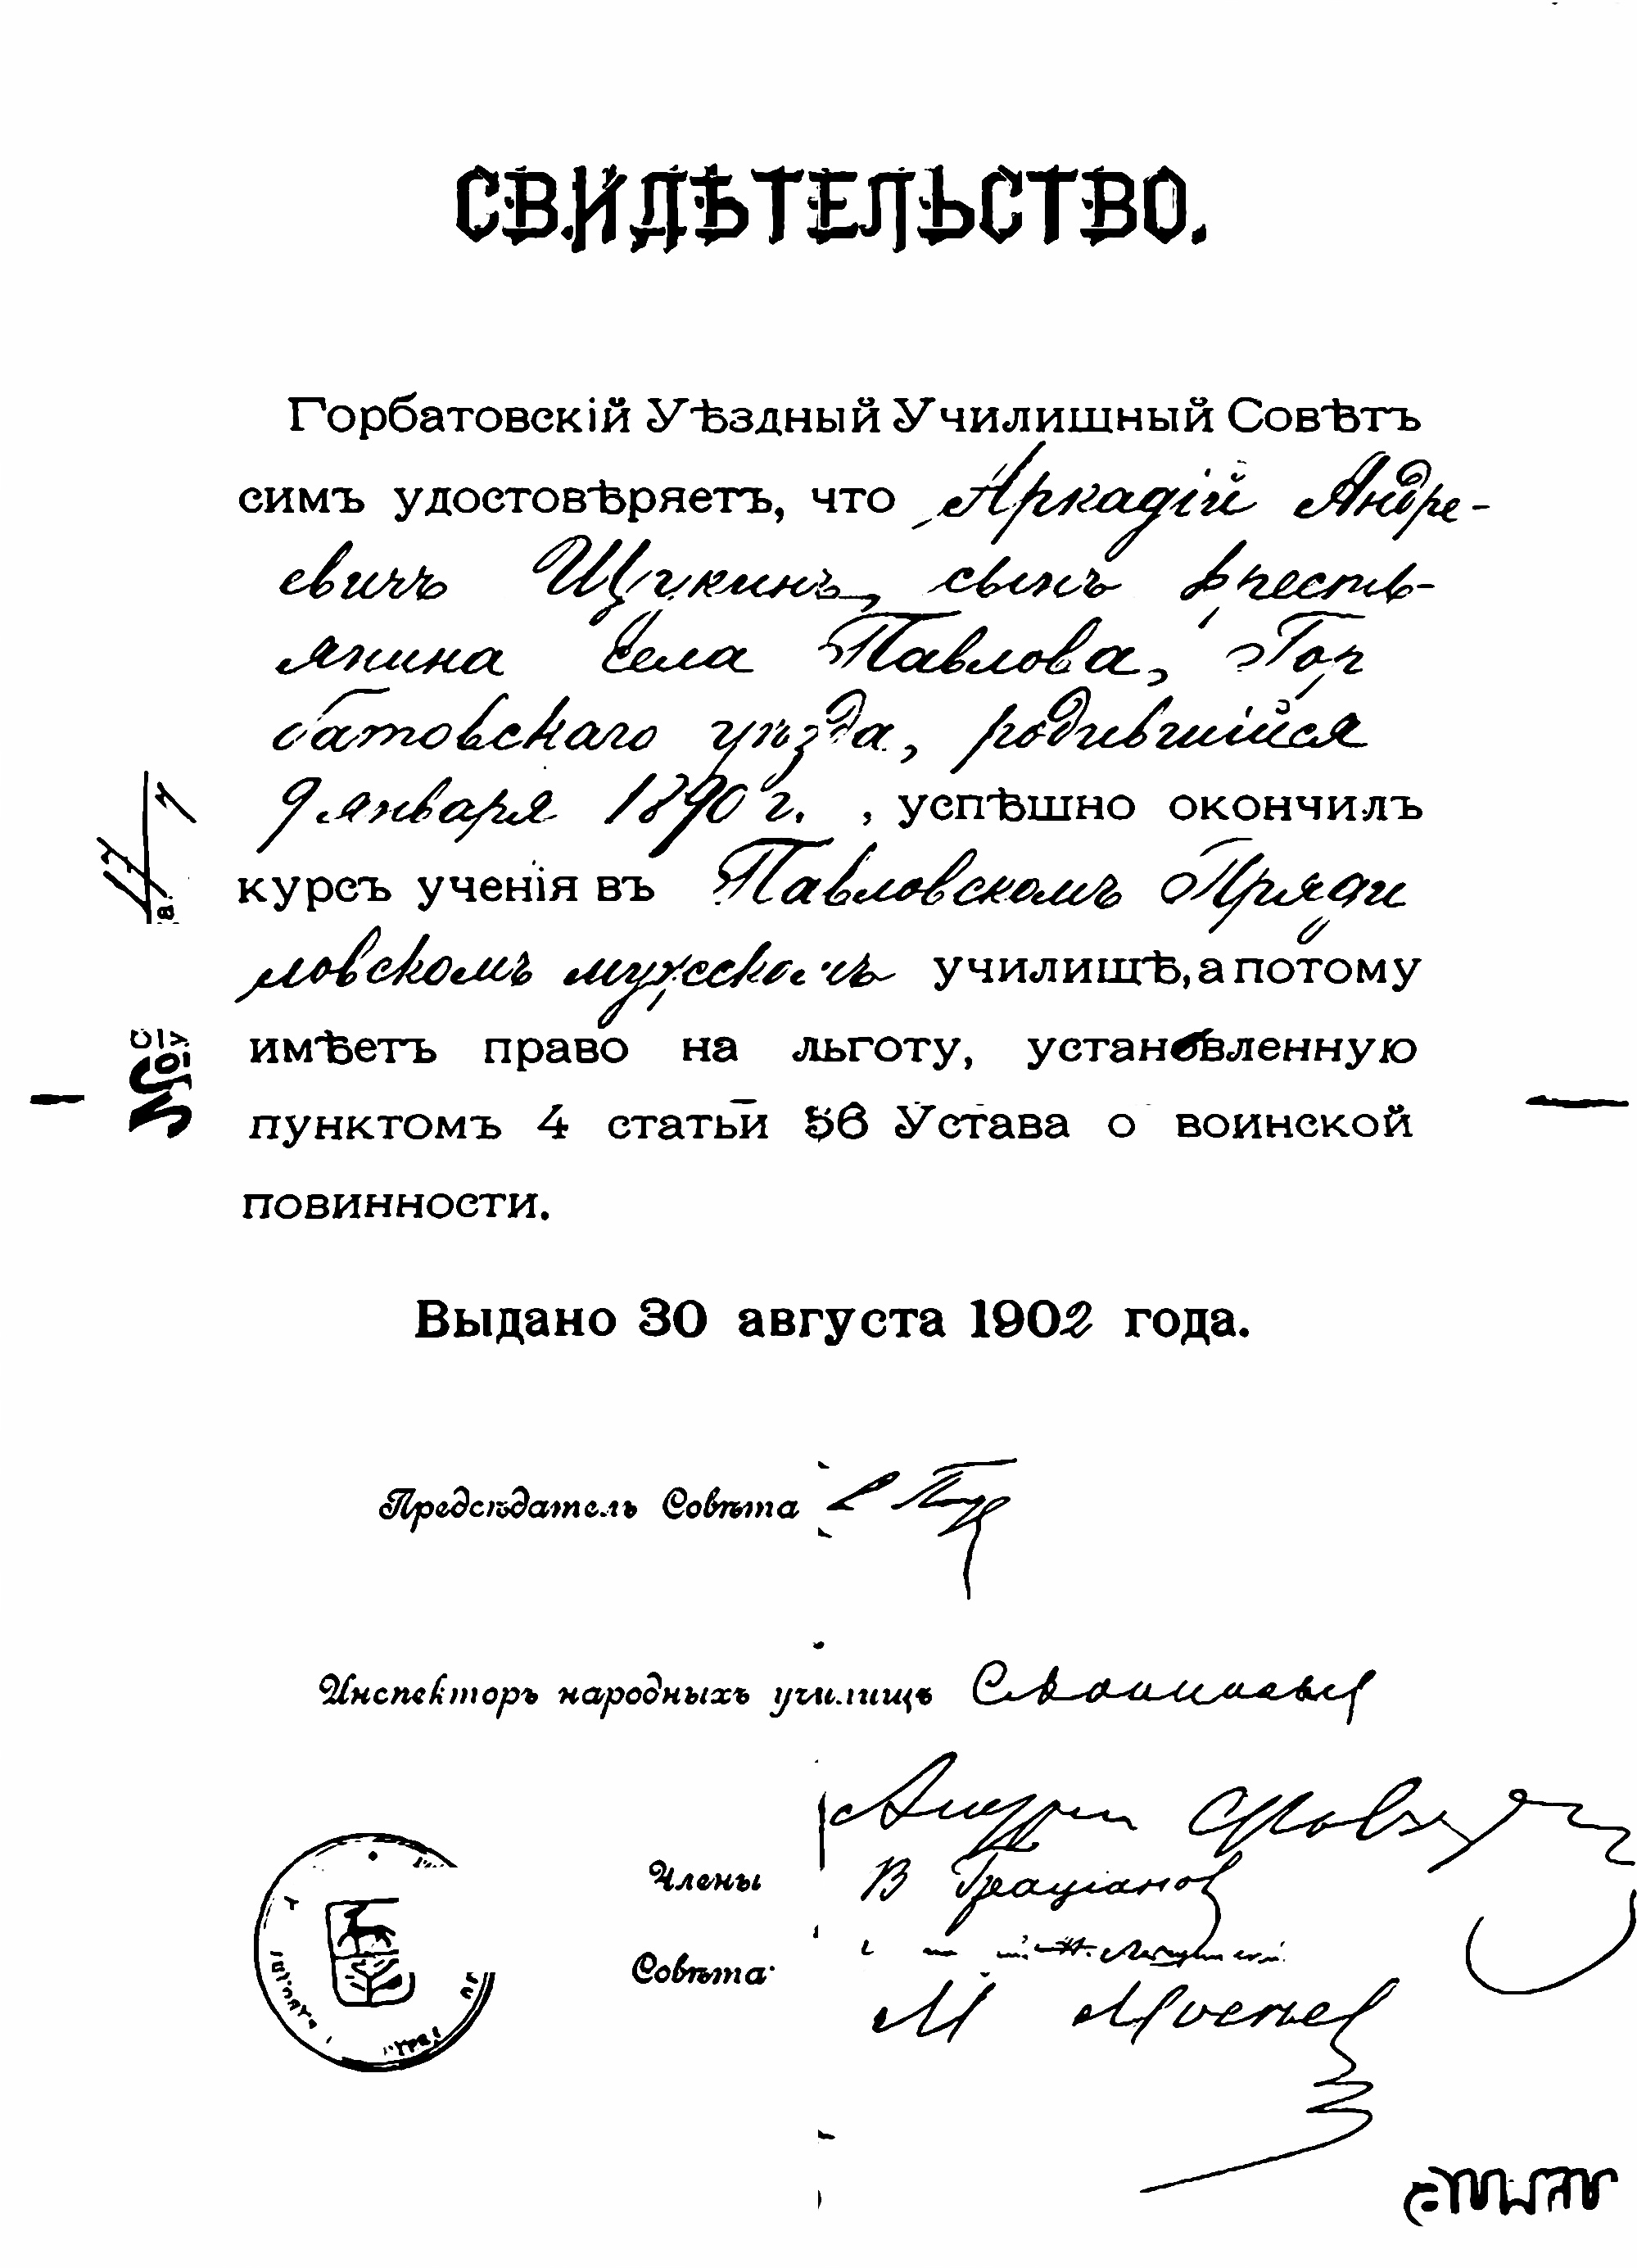 СВИДѢТЕЛЬСТВО.
Горбатовскій Уѣздный Училищный Совѣтъ
симъ удостовѣряетъ, что Аркадій Андре-
евичъ Щукинъ, сынъ крестъ-
янина села Павлова, Гор
батовскаго уѣзда, родившійся
9 января 1890 г. , успѣшно окончилъ
курсъ ученія въ Павловскомъ Пряди
ловскомъ мужскомъ училищѣ, а потому
имѣетъ право на льготу, установленную
пунктомъ 4 статьи 56 Устава о воинской
повинности.
Выдано 30 августа 1902 года.
Предсѣдатель Совѣта
Инспекторъ народныхъ училищъ
Члены В Граціанов
Совѣта
М